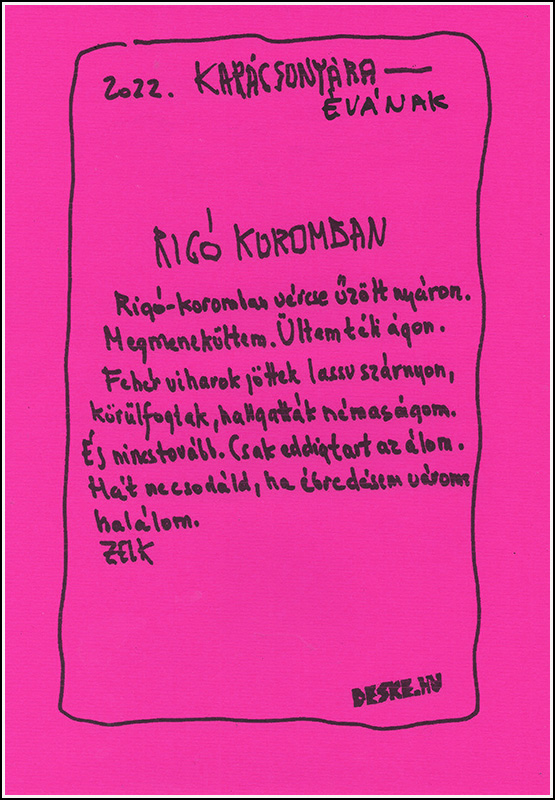 2022. KARÁCSONYÁRA —
ÉVÁNAK
RIGÓ KOROMBAN
Rigó-koromban vércse űzött nyáron.
Megmenekültem. Ültem téli ágon.
Fehér viharok jöttek lassu szárnyon,
körülfogtak, hallgatták némaságom.
És nincs tovább. Csak eddig tart az álom.
Hát ne csodáld, ha ébredésem várom
halálom.
ZELK
DESKE.HU